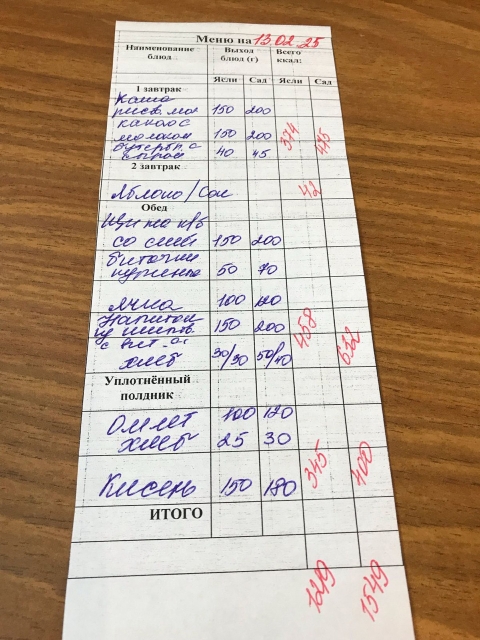 Меню на 13.02.25
Наименование блюд Выход блюд (г) Всего ккал:
Ясли Сад Ясли Сад
1 завтрак
Каша
рисов. мол 150 200
какао с
молоком 150 200 374
бутерб. с
сыром 40 45
2 завтрак
Яблоко/Сок 42
Обед
Щи на к/б
со смет 150 200
биточки
куриные 50 70
100
Напиток
из шипов.
с вит. "С" 150 200 458
хлеб 30/30 50/40 632
Уплотнённый полдник
Омлет 100 120
хлеб 25 30
345 400
Кисель 150 180
ИТОГО
1219 1549